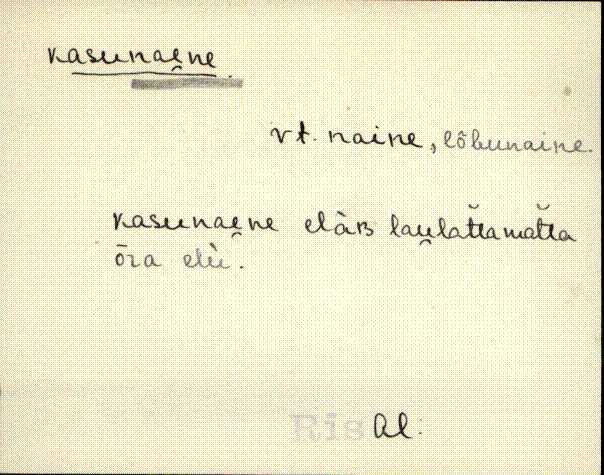 kasunae̯ne.
vt. naine, lõbunaine.
kasunae̯ne elàʙ lau̯lat̆tamat̆ta
ōra elù.
Ris Al.